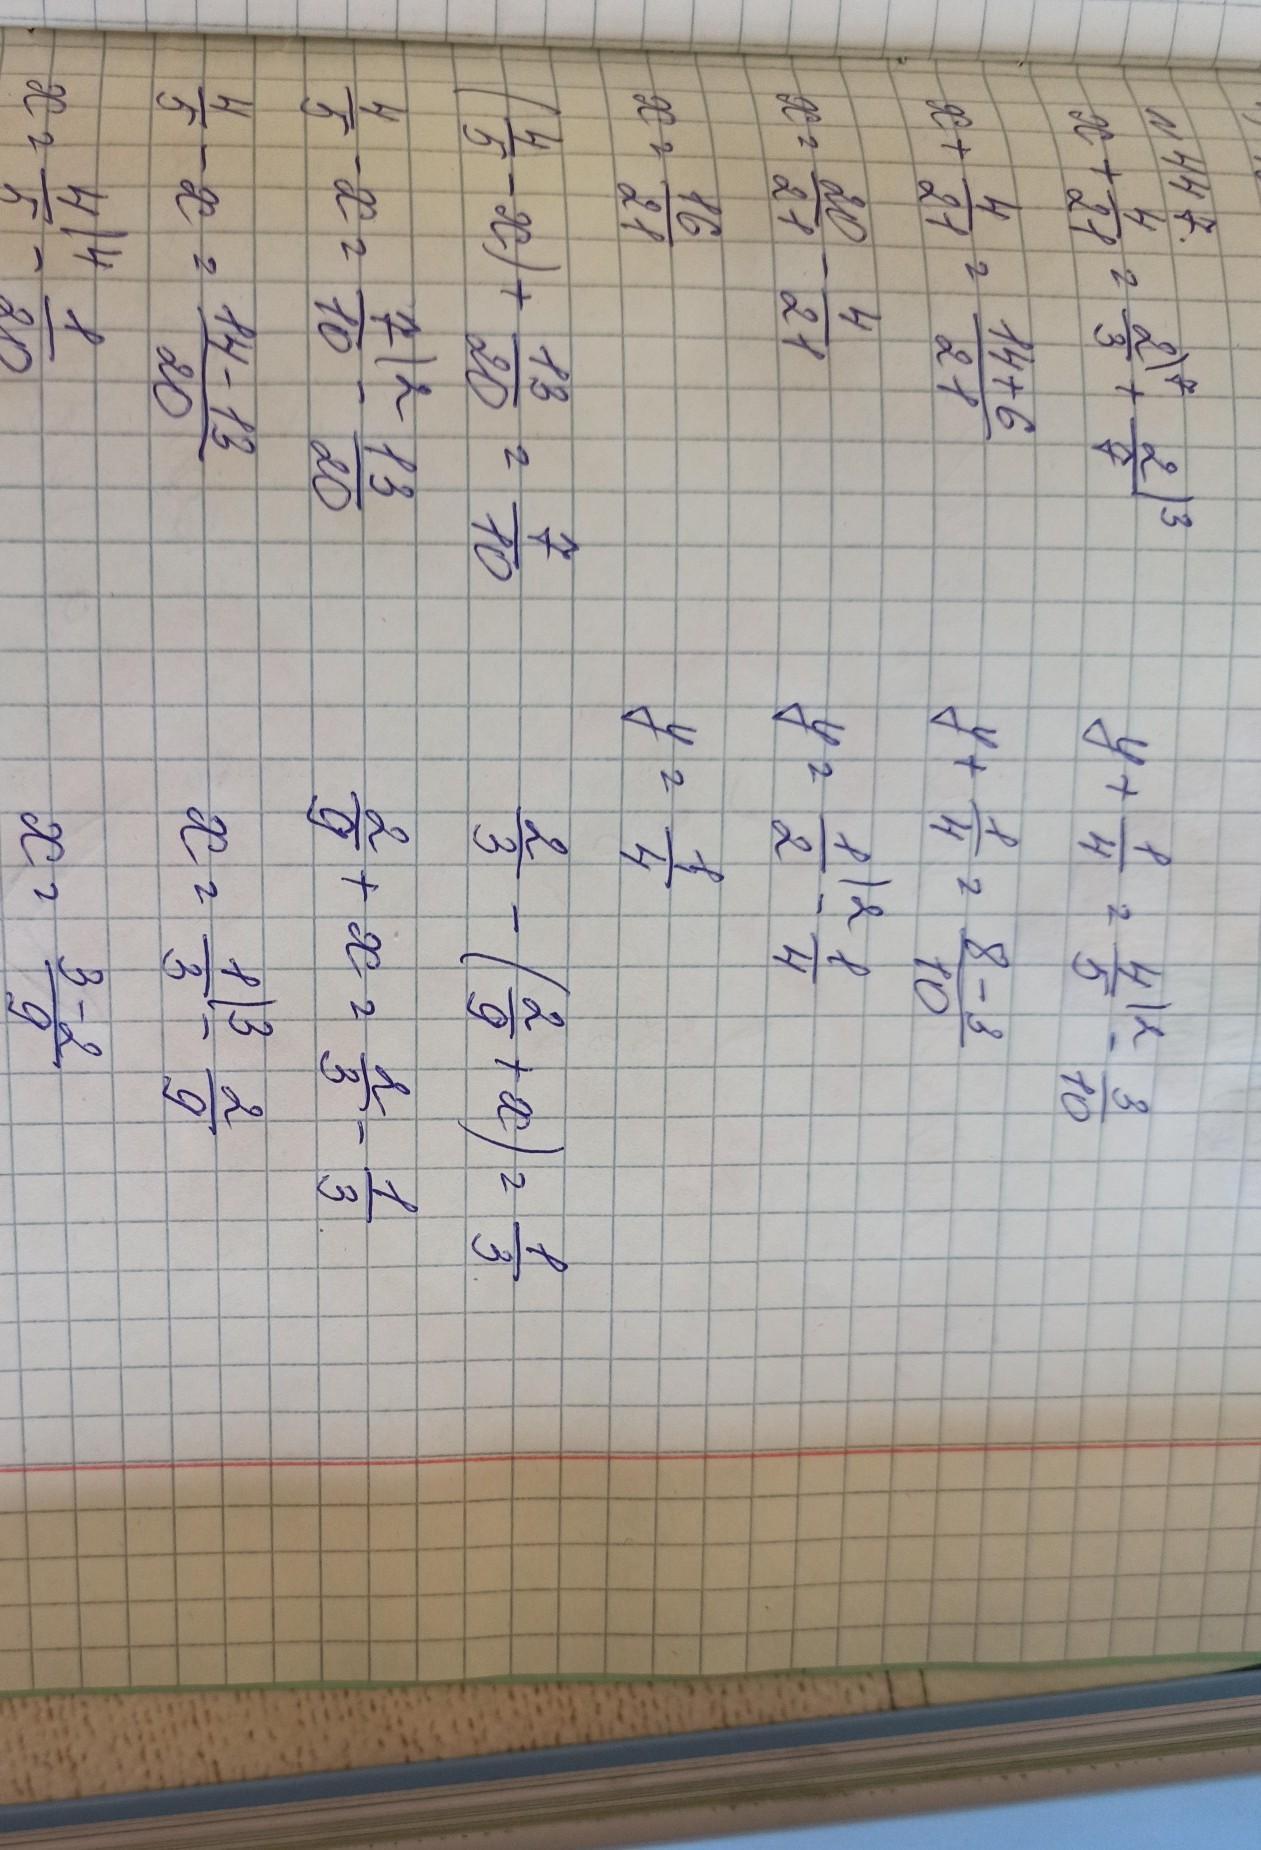 N 447.
x + 4/21 = 2/3)7 + 2/7)3
x + 4/21 = 14+6/21
x = 20/21 - 4/21
x = 16/21
(4/5 - x) + 13/20 = 7/10
4/5 - x = 7/10)2 - 13/20
4/5 - x = 14-13/20
x = 4/5)4 - 1/20
y + 1/4 = 4/5)2 - 3/10
y + 1/4 = 8-3/10
y = 1/2)2 - 1/4
y = 1/4
2/3 - (2/9 + x) = 1/3
2/9 + x = 2/3 - 1/3
x = 1/3)3 - 2/9
x = 3-2/9